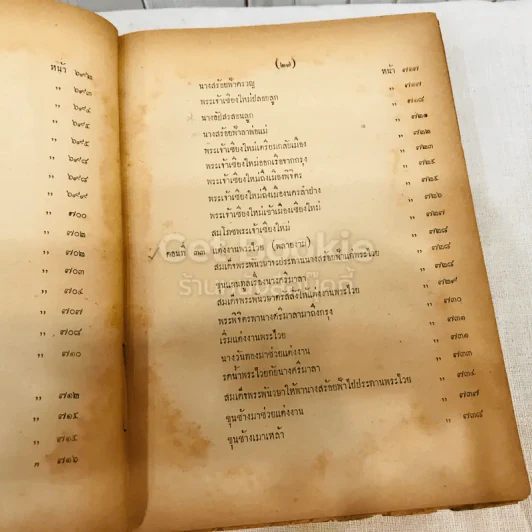 หน้า ๖๙๒
„ ๖๙๓
„ ๖๙๔
„ ๖๙๕
„ ๖๙๕
„ ๖๙๘
„ ๖๙๙
„ ๗๐๐
„ ๗๐๒
„ ๗๐๒
„ ๗๐๓
„ ๗๐๔
„ ๗๐๗
„ ๗๐๘
„ ๗๑๐
„ ๗๑๒
„ ๗๑๕
„ ๗๑๕
„ ๗๑๖
(๒๗)
นางสร้อยฟ้าครวญ หน้า ๗๑๗
พระเจ้าเชียงใหม่ปลอบลูก „ ๗๑๗
นางอัปสรสอนลูก „ ๗๑๘
นางสร้อยฟ้าลาพ่อแม่ „ ๗๒๑
พระเจ้าเชียงใหม่เตรียมกลับเมือง „ ๗๒๒
พระเจ้าเชียงใหม่ออกเรือจากกรุง „ ๗๒๓
พระเจ้าเชียงใหม่ถึงเมืองพิจิตร „ ๗๒๕
พระเจ้าเชียงใหม่ถึงเมืองนครลำปาง „ ๗๒๕
พระเจ้าเชียงใหม่เข้าเมืองเชียงใหม่ „ ๗๒๗
สมโภชพระเจ้าเชียงใหม่ „ ๗๒๗
ตอนที่ ๓๓ แต่งงานพระไวย (พลายงาม) „ ๗๒๘
สมเด็จพระพันวษาจะประทานนางสร้อยฟ้าแก่พระไวย „ ๗๒๘
ขุนแผนทูลเรื่องนางศรีมาลา „ ๗๒๘
สมเด็จพระพันวษาตรัสสั่งให้แต่งงานพระไวย „ ๗๒๙
พระพิจิตรพานางศรีมาลามาถึงกรุง „ ๗๓๐
เริ่มแต่งงานพระไวย „ ๗๓๑
นางวันทองมาช่วยแต่งงาน „ ๗๓๑
รดน้ำพระไวยกับนางศรีมาลา „ ๗๓๓
สมเด็จพระพันวษาให้พานางสร้อยฟ้าไปประทานพระไวย „ ๗๓๔
ขุนช้างมาช่วยแต่งงาน „ ๗๓๗
ขุนช้างเมาเหล้า „ ๗๓๘
Get bookie
ร้านหนังสือเก็ตบุ๊คกี้